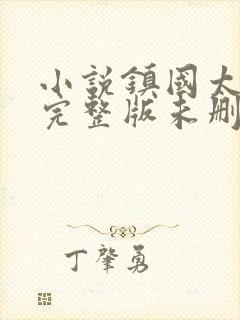 小説鎮國大
完整版未刪
丁肇勇